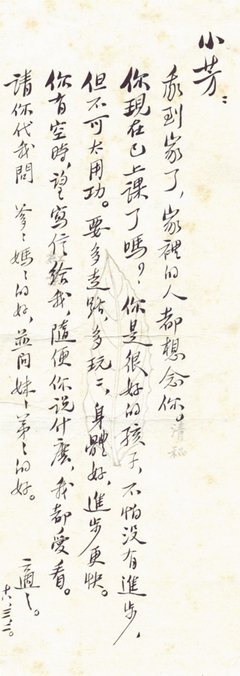 小芳：
我到家了，家裡的人都想念你。
你現在已上課了嗎？你是很好的孩子，不怕沒有進步，
但不可太用功。要多走路，多玩々，身體好，進步更快。
你有空時，望寫信給我，隨便你说什麽，我都愛看。
請你代我問　爹々媽々的好，並问妹々弟々的好。
適之。
清秘